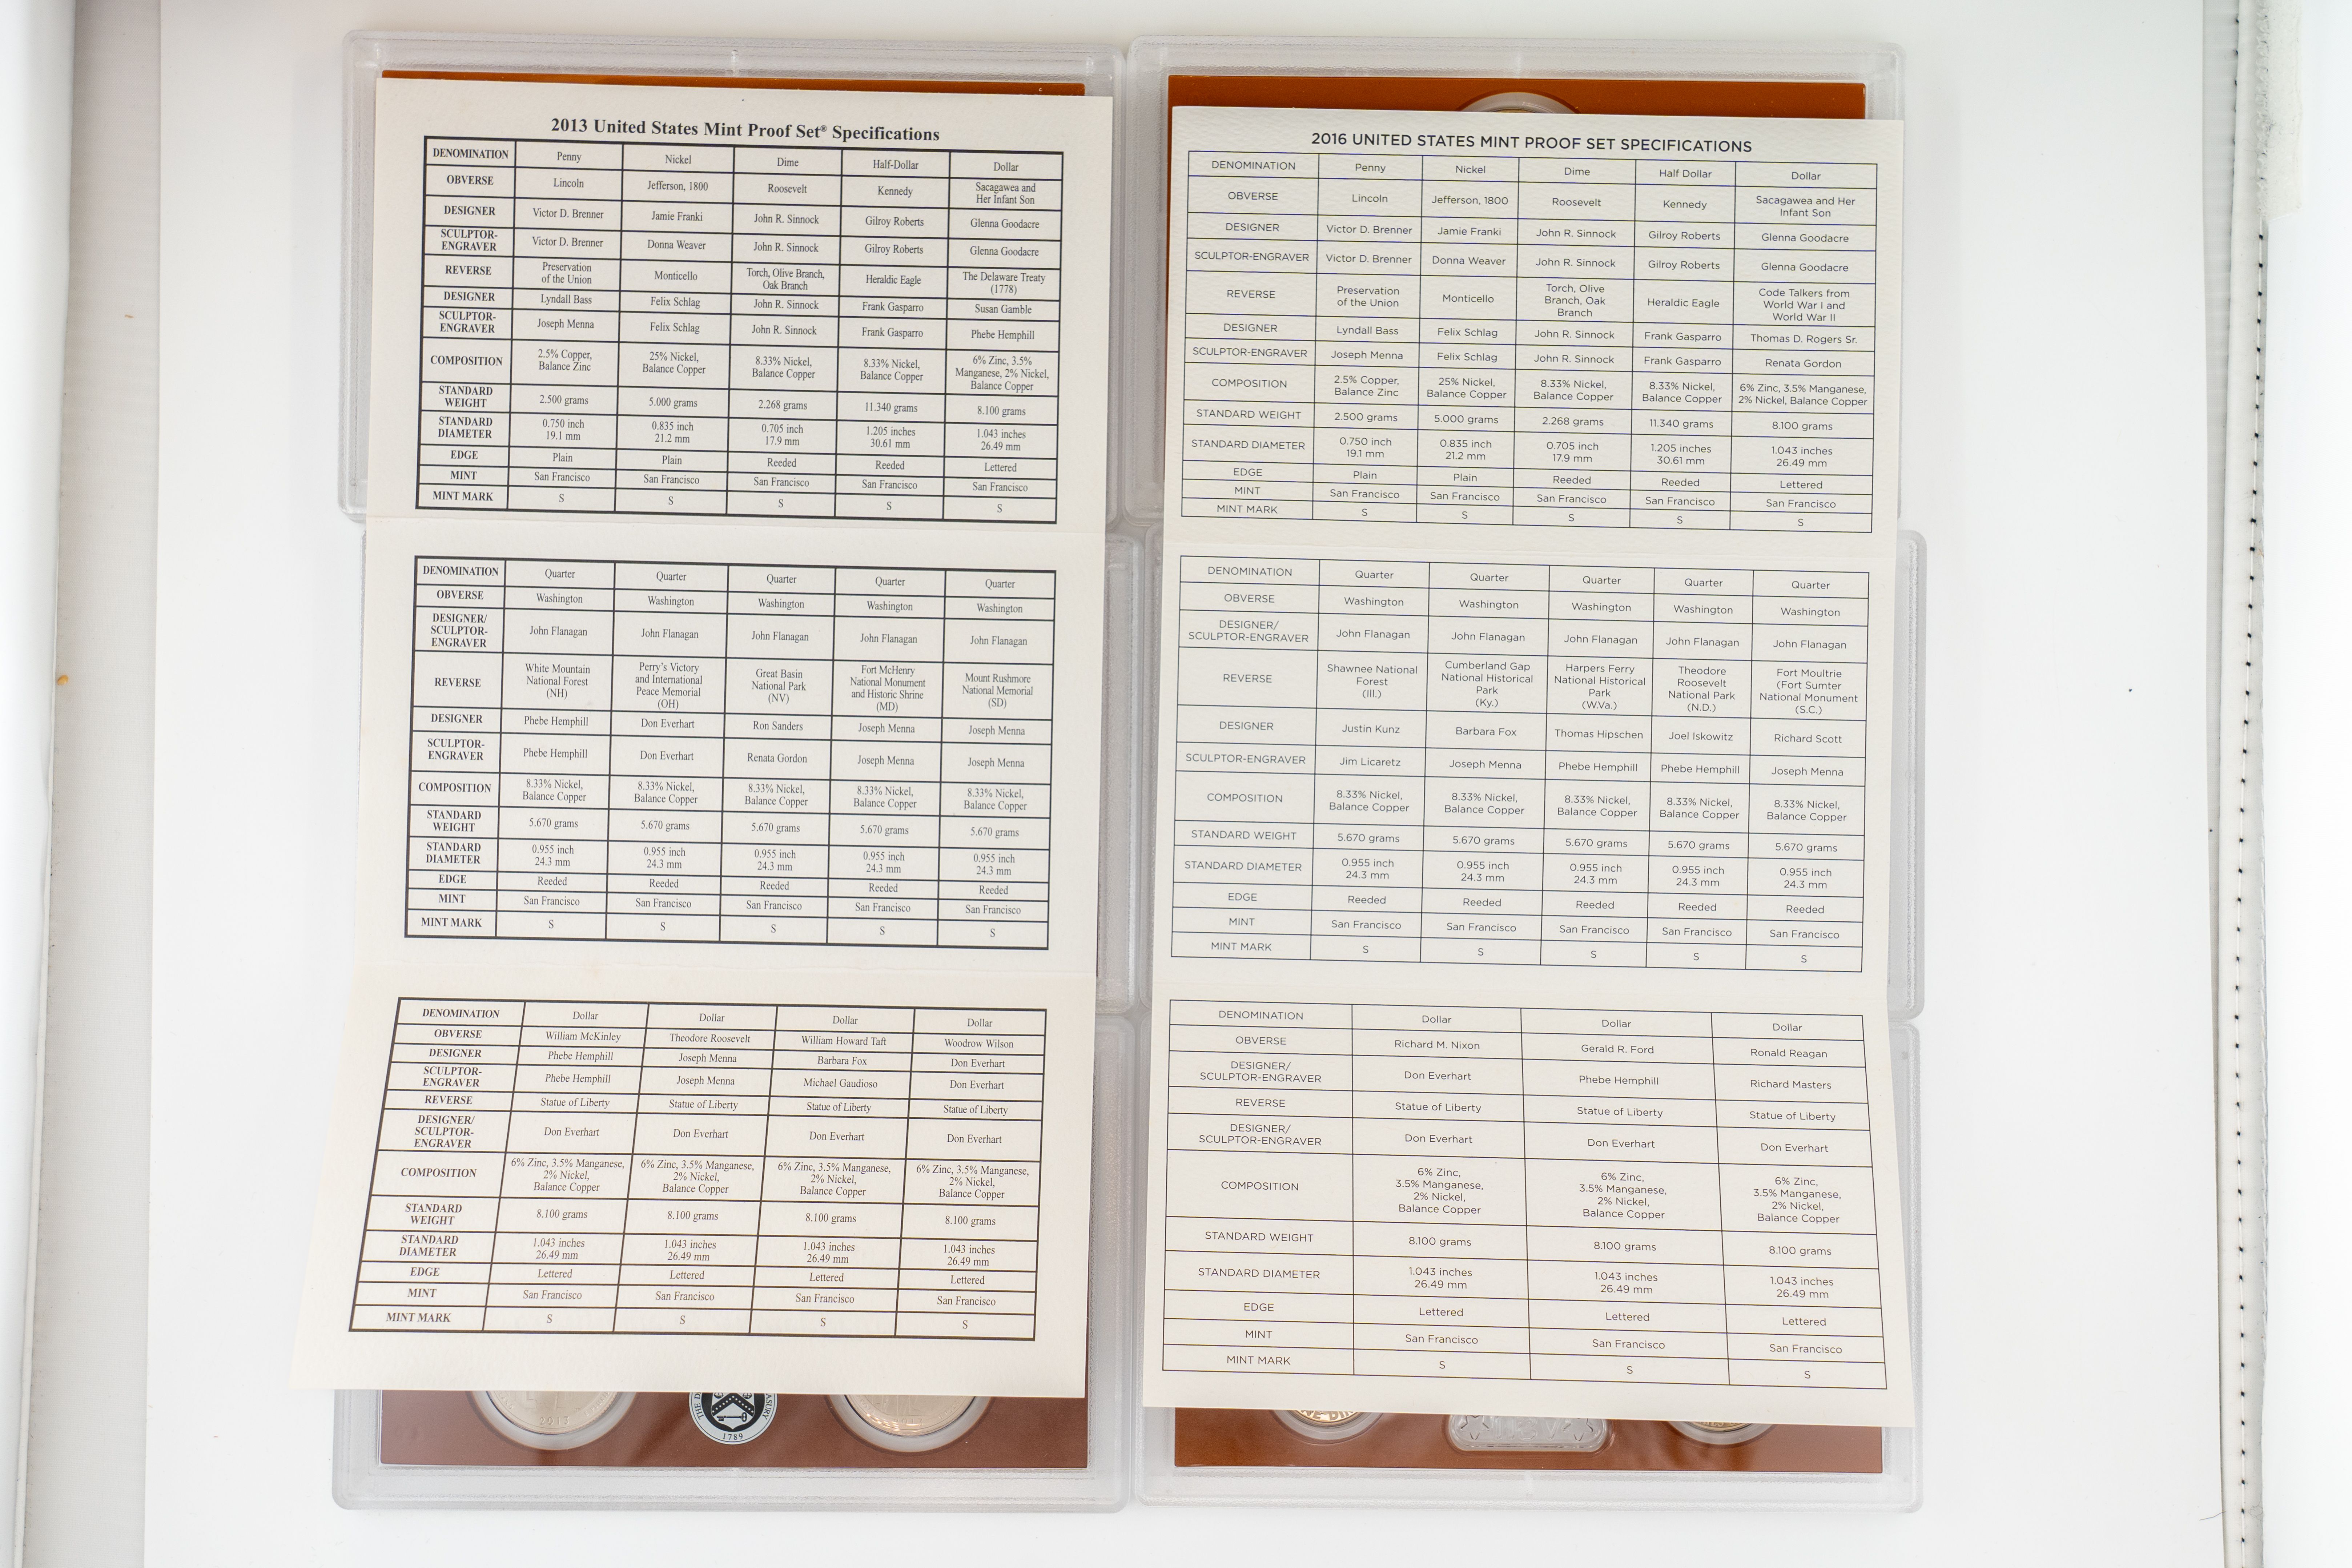 2013 United States Mint Proof Set® Specifications
DENOMINATION Penny Nickel Dime Half-Dollar Dollar
OBVERSE Lincoln Jefferson, 1800 Roosevelt Kennedy Sacagawea and Her Infant Son
DESIGNER Victor D. Brenner Jamie Franki John R. Sinnock Gilroy Roberts Glenna Goodacre
SCULPTOR-ENGRAVER Victor D. Brenner Donna Weaver John R. Sinnock Gilroy Roberts Glenna Goodacre
REVERSE Preservation of the Union Monticello Torch, Olive Branch, Oak Branch Heraldic Eagle The Delaware Treaty (1778)
DESIGNER Lyndall Bass Felix Schlag John R. Sinnock Frank Gasparro Susan Gamble
SCULPTOR-ENGRAVER Joseph Menna Felix Schlag John R. Sinnock Frank Gasparro Phebe Hemphill
COMPOSITION 2.5% Copper, Balance Zinc 25% Nickel, Balance Copper 8.33% Nickel, Balance Copper 8.33% Nickel, Balance Copper 6% Zinc, 3.5% Manganese, 2% Nickel, Balance Copper
STANDARD WEIGHT 2.500 grams 5.000 grams 2.268 grams 11.340 grams 8.100 grams
STANDARD DIAMETER 0.750 inch 19.1 mm 0.835 inch 21.2 mm 0.705 inch 17.9 mm 1.205 inches 30.61 mm 1.043 inches 26.49 mm
EDGE Plain Plain Reeded Reeded Lettered
MINT San Francisco San Francisco San Francisco San Francisco San Francisco
MINT MARK S S S S S
DENOMINATION Quarter Quarter Quarter Quarter Quarter
OBVERSE Washington Washington Washington Washington Washington
DESIGNER/ SCULPTOR-ENGRAVER John Flanagan John Flanagan John Flanagan John Flanagan John Flanagan
REVERSE White Mountain National Forest (NH) Perry's Victory and International Peace Memorial (OH) Great Basin National Park (NV) Fort McHenry National Monument and Historic Shrine (MD) Mount Rushmore National Memorial (SD)
DESIGNER Phebe Hemphill Don Everhart Ron Sanders Joseph Menna Joseph Menna
SCULPTOR-ENGRAVER Phebe Hemphill Don Everhart Renata Gordon Joseph Menna Joseph Menna
COMPOSITION 8.33% Nickel, Balance Copper 8.33% Nickel, Balance Copper 8.33% Nickel, Balance Copper 8.33% Nickel, Balance Copper 8.33% Nickel, Balance Copper
STANDARD WEIGHT 5.670 grams 5.670 grams 5.670 grams 5.670 grams 5.670 grams
STANDARD DIAMETER 0.955 inch 24.3 mm 0.955 inch 24.3 mm 0.955 inch 24.3 mm 0.955 inch 24.3 mm 0.955 inch 24.3 mm
EDGE Reeded Reeded Reeded Reeded Reeded
MINT San Francisco San Francisco San Francisco San Francisco San Francisco
MINT MARK S S S S S
DENOMINATION Dollar Dollar Dollar Dollar
OBVERSE William McKinley Theodore Roosevelt William Howard Taft Woodrow Wilson
DESIGNER Phebe Hemphill Joseph Menna Barbara Fox Don Everhart
SCULPTOR-ENGRAVER Phebe Hemphill Joseph Menna Michael Gaudioso Don Everhart
REVERSE Statue of Liberty Statue of Liberty Statue of Liberty Statue of Liberty
DESIGNER/ SCULPTOR-ENGRAVER Don Everhart Don Everhart Don Everhart Don Everhart
COMPOSITION 6% Zinc, 3.5% Manganese, 2% Nickel, Balance Copper 6% Zinc, 3.5% Manganese, 2% Nickel, Balance Copper 6% Zinc, 3.5% Manganese, 2% Nickel, Balance Copper 6% Zinc, 3.5% Manganese, 2% Nickel, Balance Copper
STANDARD WEIGHT 8.100 grams 8.100 grams 8.100 grams 8.100 grams
STANDARD DIAMETER 1.043 inches 26.49 mm 1.043 inches 26.49 mm 1.043 inches 26.49 mm 1.043 inches 26.49 mm
EDGE Lettered Lettered Lettered Lettered
MINT San Francisco San Francisco San Francisco San Francisco
MINT MARK S S S S
2013
1789
2016 UNITED STATES MINT PROOF SET SPECIFICATIONS
DENOMINATION Penny Nickel Dime Half Dollar Dollar
OBVERSE Lincoln Jefferson, 1800 Roosevelt Kennedy Sacagawea and Her Infant Son
DESIGNER Victor D. Brenner Jamie Franki John R. Sinnock Gilroy Roberts Glenna Goodacre
SCULPTOR-ENGRAVER Victor D. Brenner Donna Weaver John R. Sinnock Gilroy Roberts Glenna Goodacre
REVERSE Preservation of the Union Monticello Torch, Olive Branch, Oak Branch Heraldic Eagle Code Talkers from World War I and World War II
DESIGNER Lyndall Bass Felix Schlag John R. Sinnock Frank Gasparro Thomas D. Rogers Sr.
SCULPTOR-ENGRAVER Joseph Menna Felix Schlag John R. Sinnock Frank Gasparro Renata Gordon
COMPOSITION 2.5% Copper, Balance Zinc 25% Nickel, Balance Copper 8.33% Nickel, Balance Copper 8.33% Nickel, Balance Copper 6% Zinc, 3.5% Manganese, 2% Nickel, Balance Copper
STANDARD WEIGHT 2.500 grams 5.000 grams 2.268 grams 11.340 grams 8.100 grams
STANDARD DIAMETER 0.750 inch 19.1 mm 0.835 inch 21.2 mm 0.705 inch 17.9 mm 1.205 inches 30.61 mm 1.043 inches 26.49 mm
EDGE Plain Plain Reeded Reeded Lettered
MINT San Francisco San Francisco San Francisco San Francisco San Francisco
MINT MARK S S S S S
DENOMINATION Quarter Quarter Quarter Quarter Quarter
OBVERSE Washington Washington Washington Washington Washington
DESIGNER/ SCULPTOR-ENGRAVER John Flanagan John Flanagan John Flanagan John Flanagan John Flanagan
REVERSE Shawnee National Forest (Ill.) Cumberland Gap National Historical Park (Ky.) Harpers Ferry National Historical Park (W.Va.) Theodore Roosevelt National Park (N.D.) Fort Moultrie (Fort Sumter National Monument (S.C.)
DESIGNER Justin Kunz Barbara Fox Thomas Hipschen Joel Iskowitz Richard Scott
SCULPTOR-ENGRAVER Jim Licaretz Joseph Menna Phebe Hemphill Phebe Hemphill Joseph Menna
COMPOSITION 8.33% Nickel, Balance Copper 8.33% Nickel, Balance Copper 8.33% Nickel, Balance Copper 8.33% Nickel, Balance Copper 8.33% Nickel, Balance Copper
STANDARD WEIGHT 5.670 grams 5.670 grams 5.670 grams 5.670 grams 5.670 grams
STANDARD DIAMETER 0.955 inch 24.3 mm 0.955 inch 24.3 mm 0.955 inch 24.3 mm 0.955 inch 24.3 mm 0.955 inch 24.3 mm
EDGE Reeded Reeded Reeded Reeded Reeded
MINT San Francisco San Francisco San Francisco San Francisco San Francisco
MINT MARK S S S S S
DENOMINATION Dollar Dollar Dollar
OBVERSE Richard M. Nixon Gerald R. Ford Ronald Reagan
DESIGNER/ SCULPTOR-ENGRAVER Don Everhart Phebe Hemphill Richard Masters
REVERSE Statue of Liberty Statue of Liberty Statue of Liberty
DESIGNER/ SCULPTOR-ENGRAVER Don Everhart Don Everhart Don Everhart
COMPOSITION 6% Zinc, 3.5% Manganese, 2% Nickel, Balance Copper 6% Zinc, 3.5% Manganese, 2% Nickel, Balance Copper 6% Zinc, 3.5% Manganese, 2% Nickel, Balance Copper
STANDARD WEIGHT 8.100 grams 8.100 grams 8.100 grams
STANDARD DIAMETER 1.043 inches 26.49 mm 1.043 inches 26.49 mm 1.043 inches 26.49 mm
EDGE Lettered Lettered Lettered
MINT San Francisco San Francisco San Francisco
MINT MARK S S S